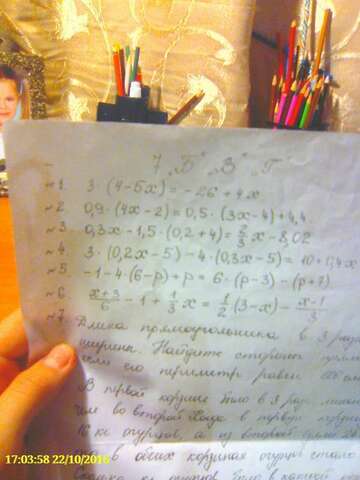 7 „Б" „В" „Г"
№1. 3·(4-5x) = -26+4x
№2. 0,9·(4x-2) = 0,5·(3x-4)+4,4
№3. 0,3x-1,5·(0,2+4) = 2/3 x - 8,02
№4. 3·(0,2x-5)-4·(0,3x-5) = 10+0,4x
№5. -1-4·(6-p)+p = 6·(p-3)-(p+7)
№6. (x+3)/6 - 1 + 1/3 x = 1/2 (3-x) - (x-1)/3
№7. Длина прямоугольника в 3 раза
ширины. Найдите стороны
если его периметр равен
В первой корзине было в 3 раза
чем во второй. Когда в первую
16 кг огурцов, а из второй
в обеих корзинах огурцов стало
огурцов было в каждой
17:03:58 22/10/2016